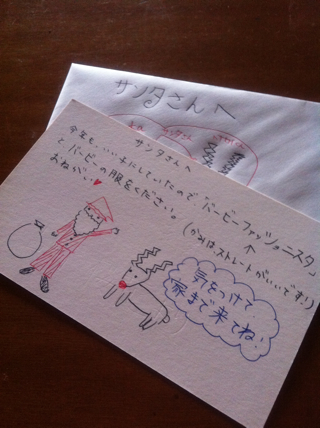 サンタさんへ
サンタさんへ
今年も、いい子にしていたので「バービーファッショニスタ」
とバービーの服をください。
(かみは、ストレートがいいです!)
おねがい♥
気をつけて
家まで来てね!